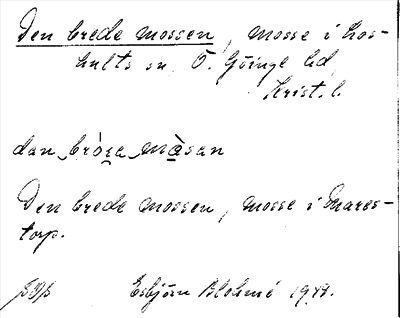 Den brede mossen, mosse i Los-
hults sn. Ö. Göinge hd
Krist. l.
dan bròra màsan
Den brede mossen, mosse i Mares-
torp.
Esbjörn Blohmé 1947.